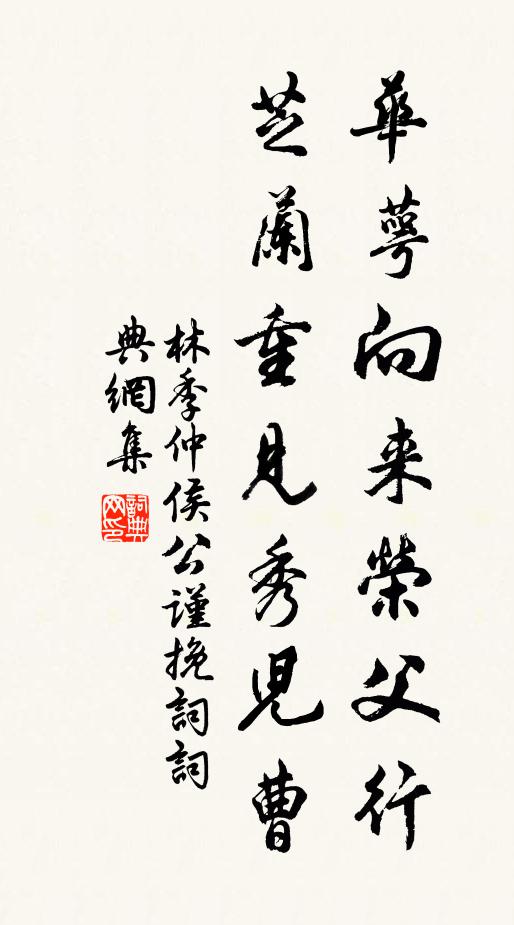 華萼向来榮父行
芝蘭重見秀児曹
林季仲侯公謹挽詞詞
典網集
詞典网印